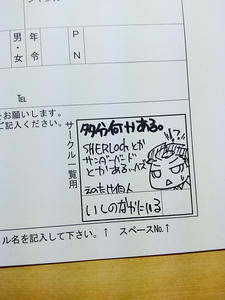 男・女
年令
P
N
TEL
をお願いします。
ご記入ください。
サークル一覧用
多分何かある。
SHERLockとか
サンダーバードとか
とかある…ハズ
！？
えのたけ個人
いしのなかにいる
ル名を記入して下さい。↑ スペースNo.↑